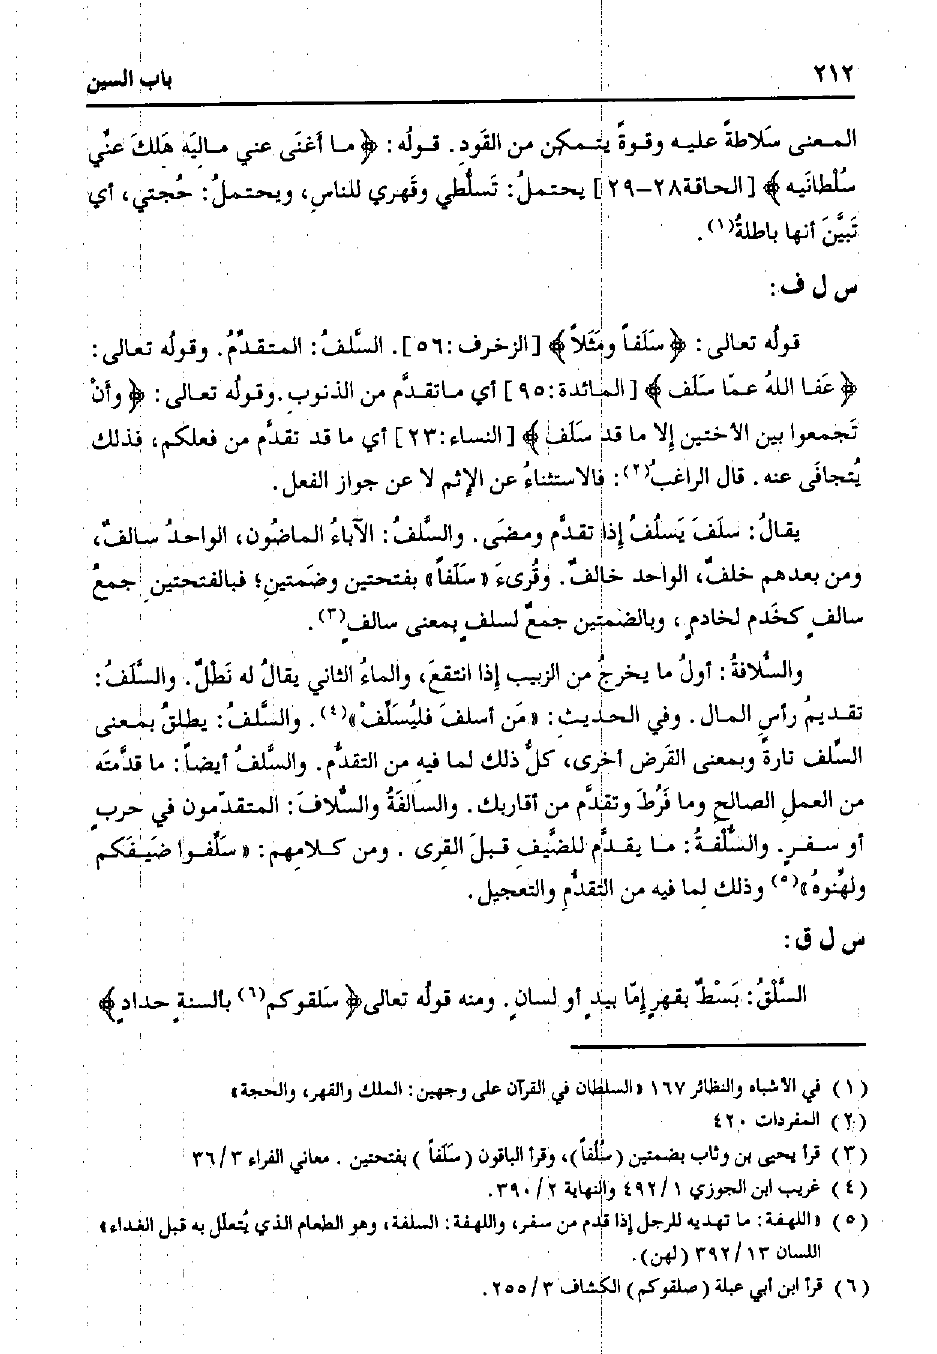 ٢١٢
باب السين
المعنى سَلاطةً عليه وقوةً يتمكن من القَودِ. قولُه: ﴿ ما أغنَى عني ماليَه هَلَكَ عنّي
سُلْطانَيه ﴾ [ الحاقة٢٨-٢٩] يحتملُ: تَسلُّطي وقَهري للناسِ، ويحتملُ: حُجتي، أي
تَبيَّنَ أنها باطلةُ(١).
س ل ف:
قولُه تعالى: ﴿ سَلَفاً ومَثَلاً ﴾ [الزخرف :٥٦]. السَّلفُ: المتقدِّمُ. وقولُه تعالى:
﴿ عَفا اللهُ عمّا سَلَف ﴾ [المائدة:٩٥] أي ماتقدَّم من الذنوبِ .وقولُه تعالى: ﴿ وأنْ
تَجمعوا بين الأختين إلا ما قد سَلَف ﴾ [النساء:٢٣] أي ما قد تقدَّم من فعلكم، فذلك
يُتجافَى عنه. قال الراغبُ(٢): فالاستثناءُ عن الإثم لا عن جواز الفعل.
يقالُ: سلَفَ يَسلُفُ إذا تقدَّم ومضَى. والسَّلفُ: الآباءُ الماضُون، الواحدُ سالفٌ،
ومن بعدهم خلفٌ، الواحد خالفٌ. وقُرىءَ «سَلَفاً» بفتحتين وضَمتينِ؛ فبالفتحتينِ جمعُ
سالفٍ كخَدمٍ لخادمٍ، وبالضمتين جمعٌ لسلفٍ بمعنى سالفٍ(٣).
والسُّلافةُ: أولُ ما يخرجُ من الزبيب إذا انتقعَ، والماءُ الثاني يقالُ له نَطْلٌ. والسَّلَفُ:
تقديمُ رأسِ المال. وفي الحديث: «مَن أسلفَ فليُسَلِّفْ»(٤). والسَّلفُ: يطلقُ بمعنى
السِّلف تارةً وبمعنى القَرض أخرى، كلُّ ذلك لما فيه من التقدُّم. والسَّلفُ أيضاً: ما قدَّمتَه
من العملِ الصالحِ وما فَرُطَ وتقدَّم من أقاربك. والسالفَةُ والسُّلافَ: المتقدّمون في حربٍ
أو سفرٍ. والسُّلْفةُ: ما يقدَّم للضَّيفِ قبلَ القِرى . ومن كلامِهم: «سَلِّفوا ضَيفَكم
ولهِّنوهُ»(٥) وذلك لِما فيه من التقدُّمِ والتعجيل.
س ل ق:
السَّلْقُ: بَسْطٌ بقهرٍ إمّا بيدٍ أو لسانٍ. ومنه قولُه تعالى﴿ سَلقوكم(٦) بألسنةٍ حدادٍ ﴾
(١) في الأشباه والنظائر ١٦٧ «السلطان في القرآن على وجهين: الملك والقهر، والحجة»
(٢) المفردات ٤٢٠
(٣) قرأ يحيى بن وثاب بضمتين (سُلُفاً)، وقرأ الباقون (سَلَفاً) بفتحتين . معاني الفراء ٣/ ٣٦
(٤) غريب ابن الجوزي ١/ ٤٩٢ والنهاية ٢/ ٣٩٠.
(٥) «اللهفة: ما تهديه للرجل إذا قدم من سفر، واللهفة: السلفة، وهو الطعام الذي يُتعلّل به قبل الغداء»
اللسان ١٣/ ٣٩٢ (لهن).
(٦) قرأ ابن أبي عبلة (صلقوكم) الكشاف ٣/ ٢٥٥.